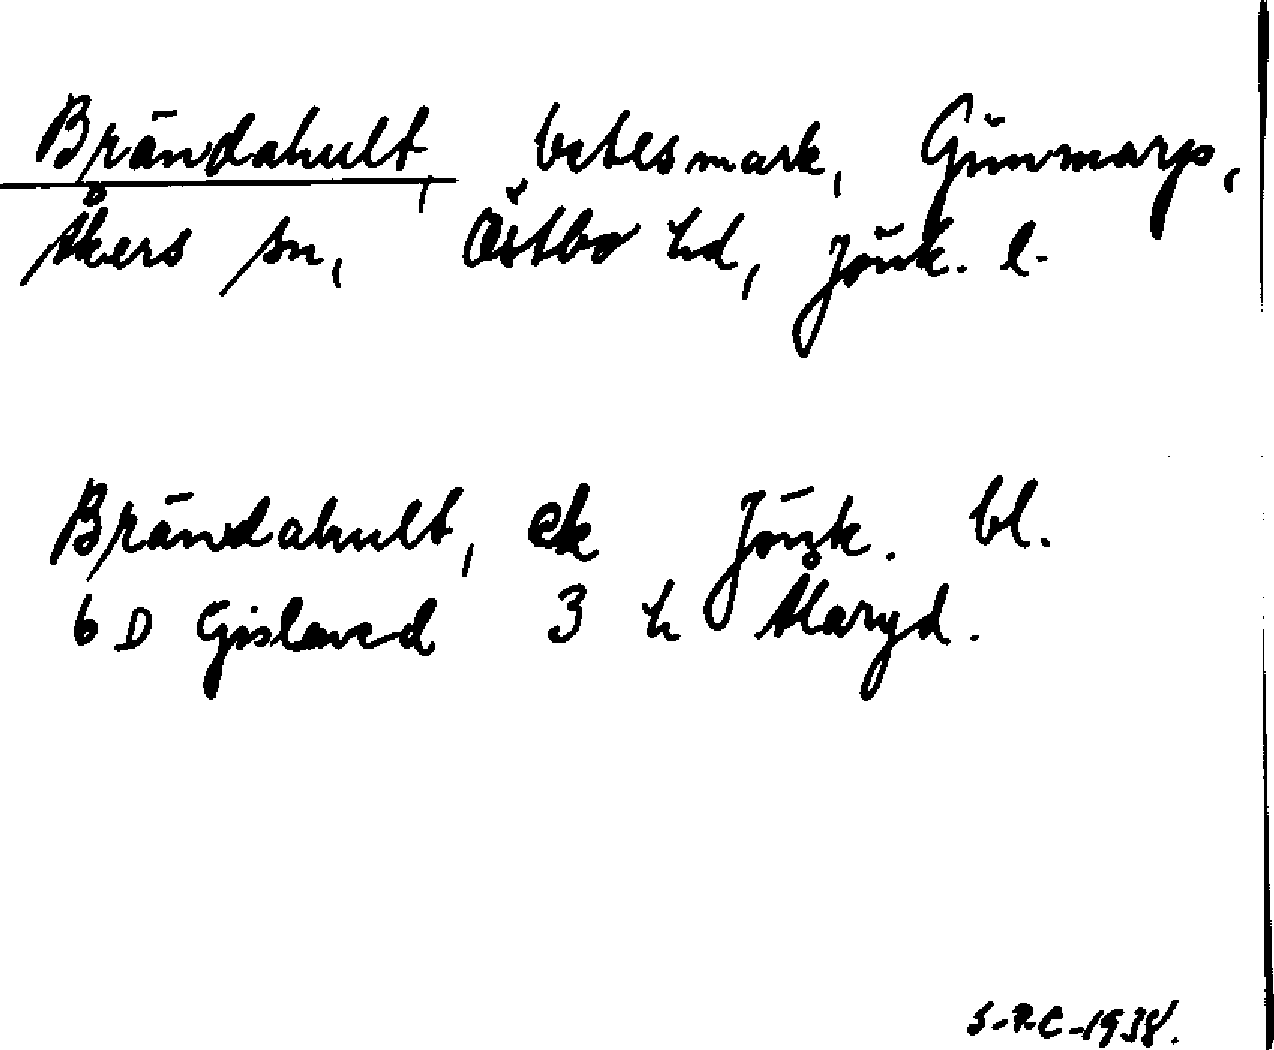 Brändahult, betesmark, Gunnmarp,
Åkers sn, Östbo hd, Jönk. l.
Brändahult, ek Jönk. bl.
6 D Gislaved 3 h Åkaryd.
S-RC-1938.